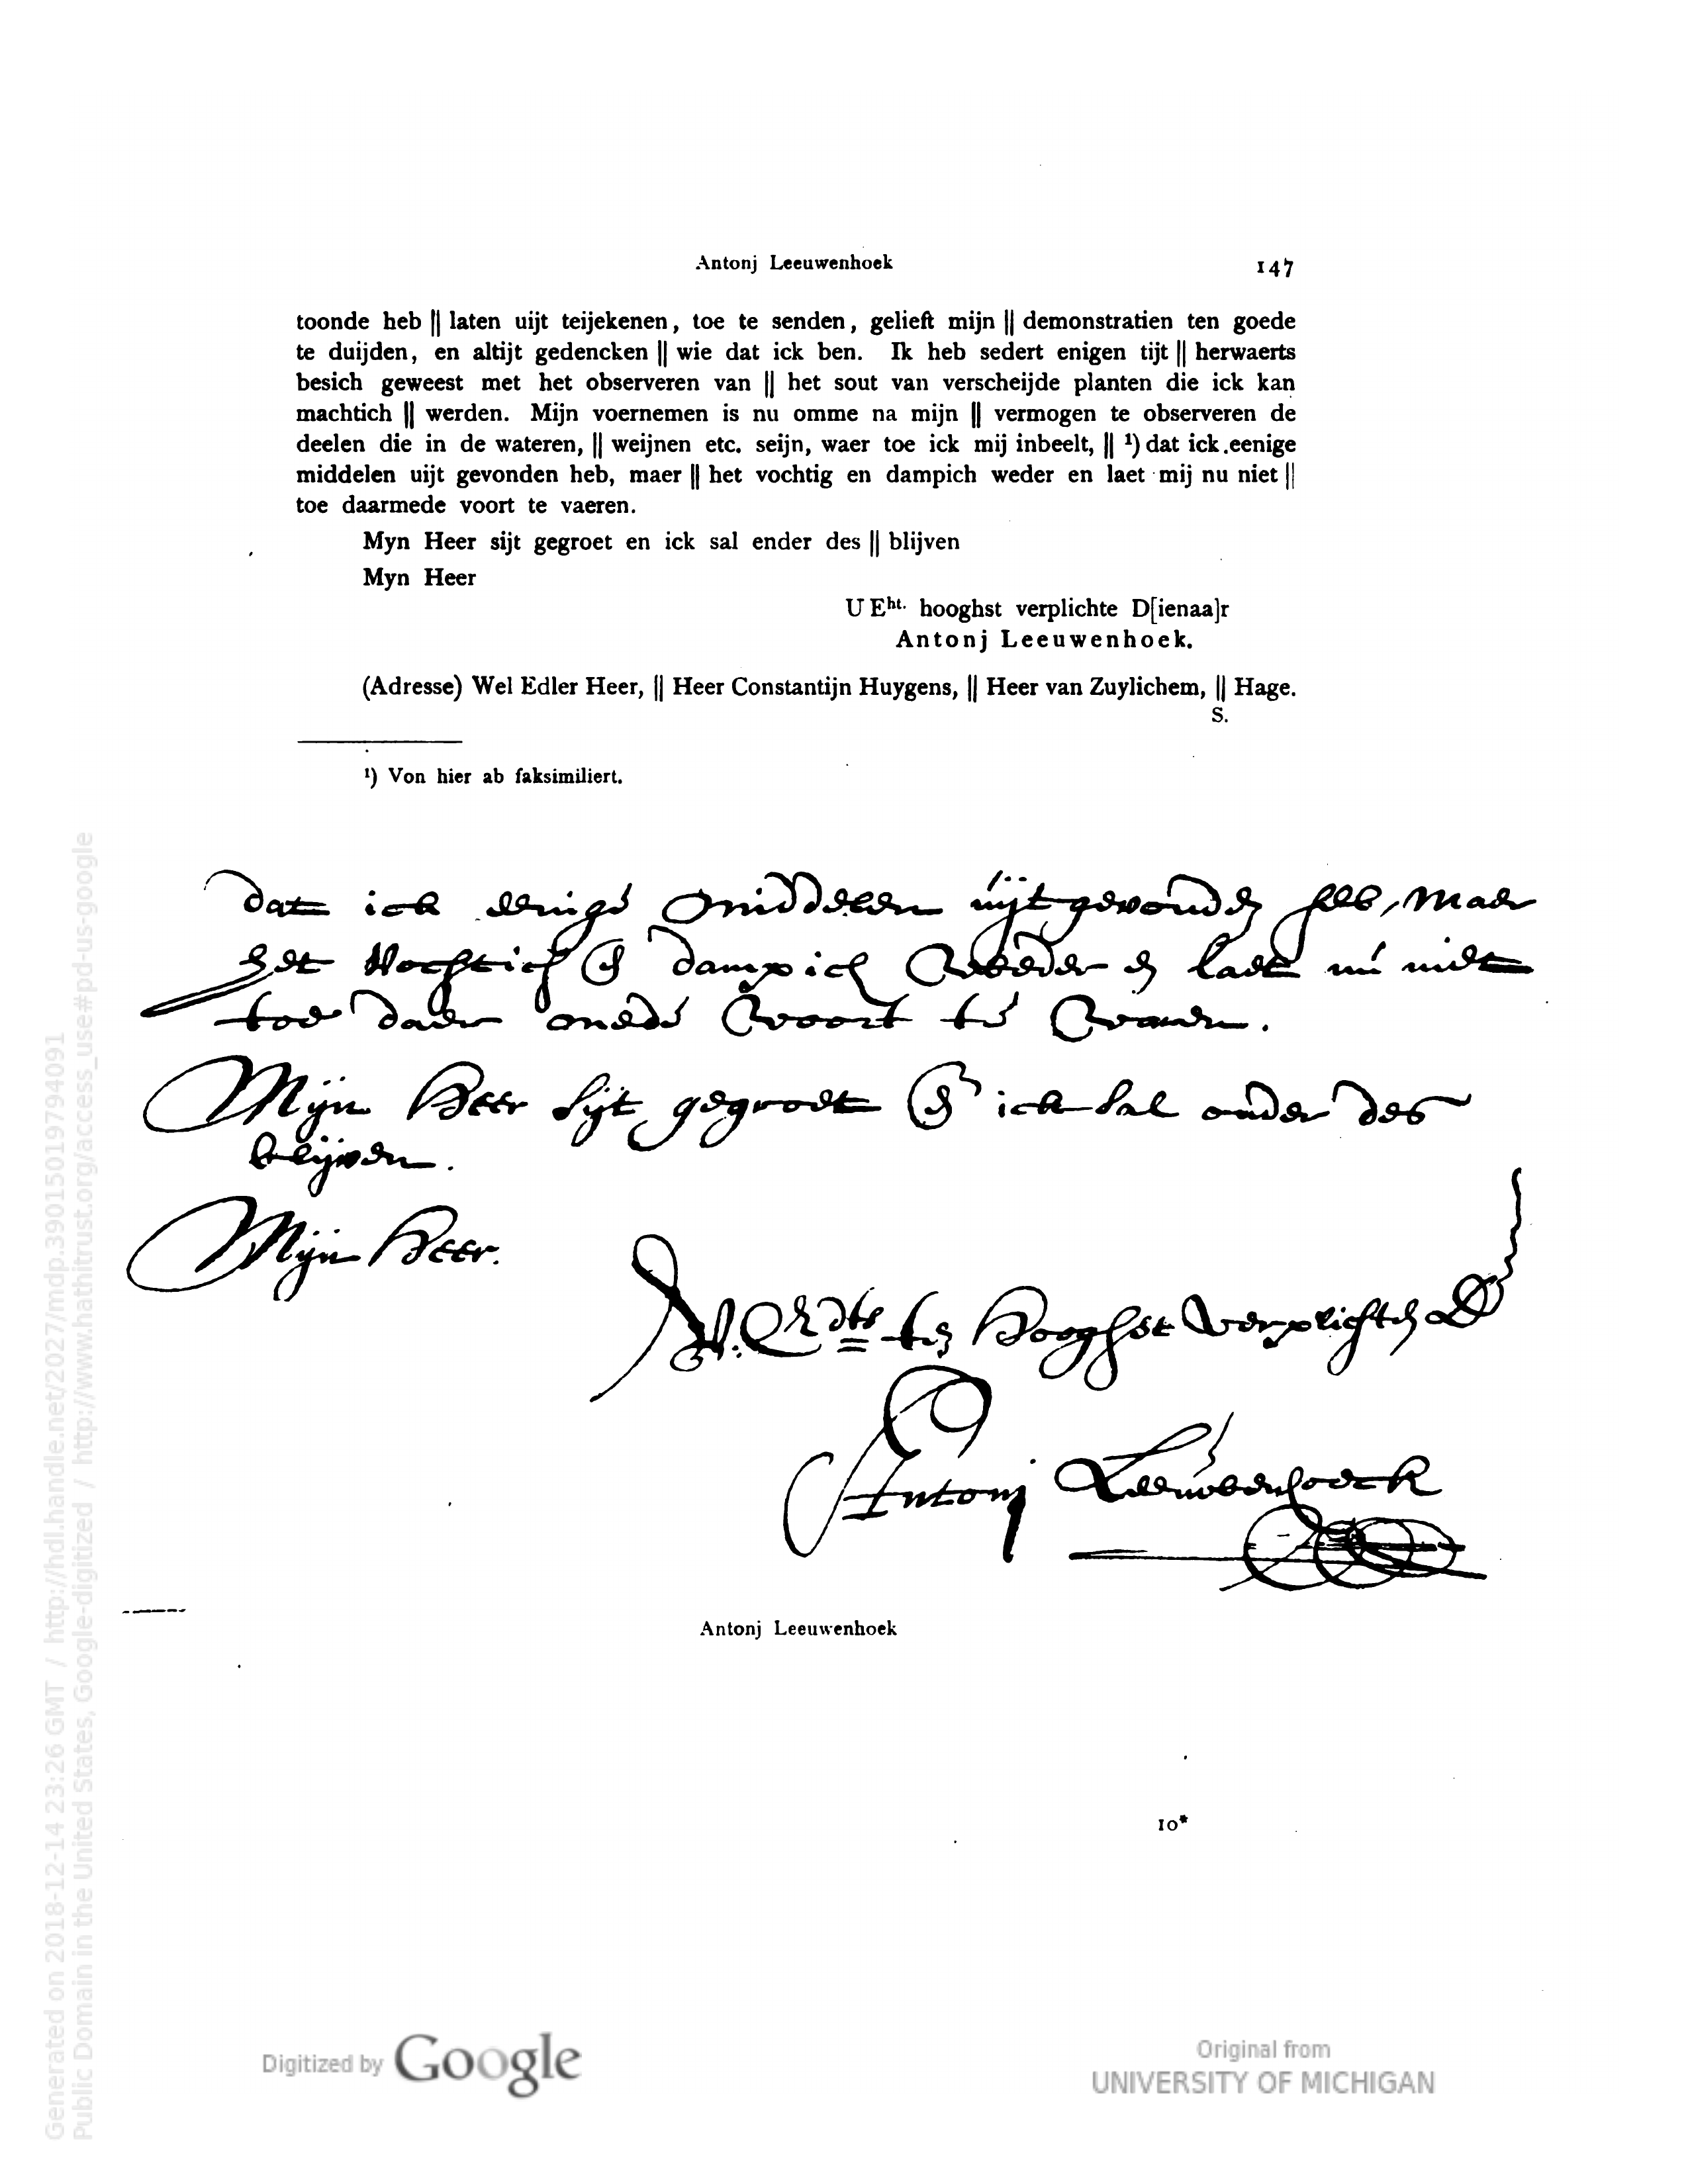 Antonj Leeuwenhoek 147
toonde heb || laten uijt teijekenen, toe te senden, gelieft mijn || demonstratien ten goede
te duijden, en altijt gedencken || wie dat ick ben. Ik heb sedert enigen tijt || herwaerts
besich geweest met het observeren van || het sout van verscheijde planten die ick kan
machtich || werden. Mijn voernemen is nu omme na mijn || vermogen te observeren de
deelen die in de wateren, || weijnen etc. seijn, waer toe ick mij inbeelt, || ¹) dat ick eenige
middelen uijt gevonden heb, maer || het vochtig en dampich weder en laet mij nu niet ||
toe daarmede voort te vaeren.
Myn Heer sijt gegroet en ick sal ender des || blijven
Myn Heer
U Eht. hooghst verplichte D[ienaa]r
Antonj Leeuwenhoek.
(Adresse) Wel Edler Heer, || Heer Constantijn Huygens, || Heer van Zuylichem, || Hage.
S.
¹) Von hier ab faksimiliert.
dat ick eenige middelen uijt gevonden heb, maer
het vochtich en dampich weeder en laet nu niet
toe daer mede voort te vaeren.
Mijn Heer sijt gegroet en ick sal onder des
blijven.
Mijn Heer.
hooghst verplichte D
Antonj Leeuwenhoeck
Antonj Leeuwenhoek
10*
Generated on 2018-12-14 23:26 GMT / http://hdl.handle.net/2027/mdp.39015019794091
Public Domain in the United States, Google-digitized / http://www.hathitrust.org/access_use#pd-us-google
Digitized by Google
Original from
UNIVERSITY OF MICHIGAN